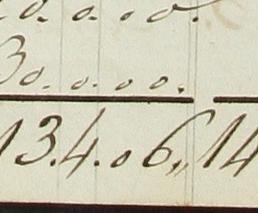 0.0.0.0.
30.0.0.0.
13.4.06,, 14